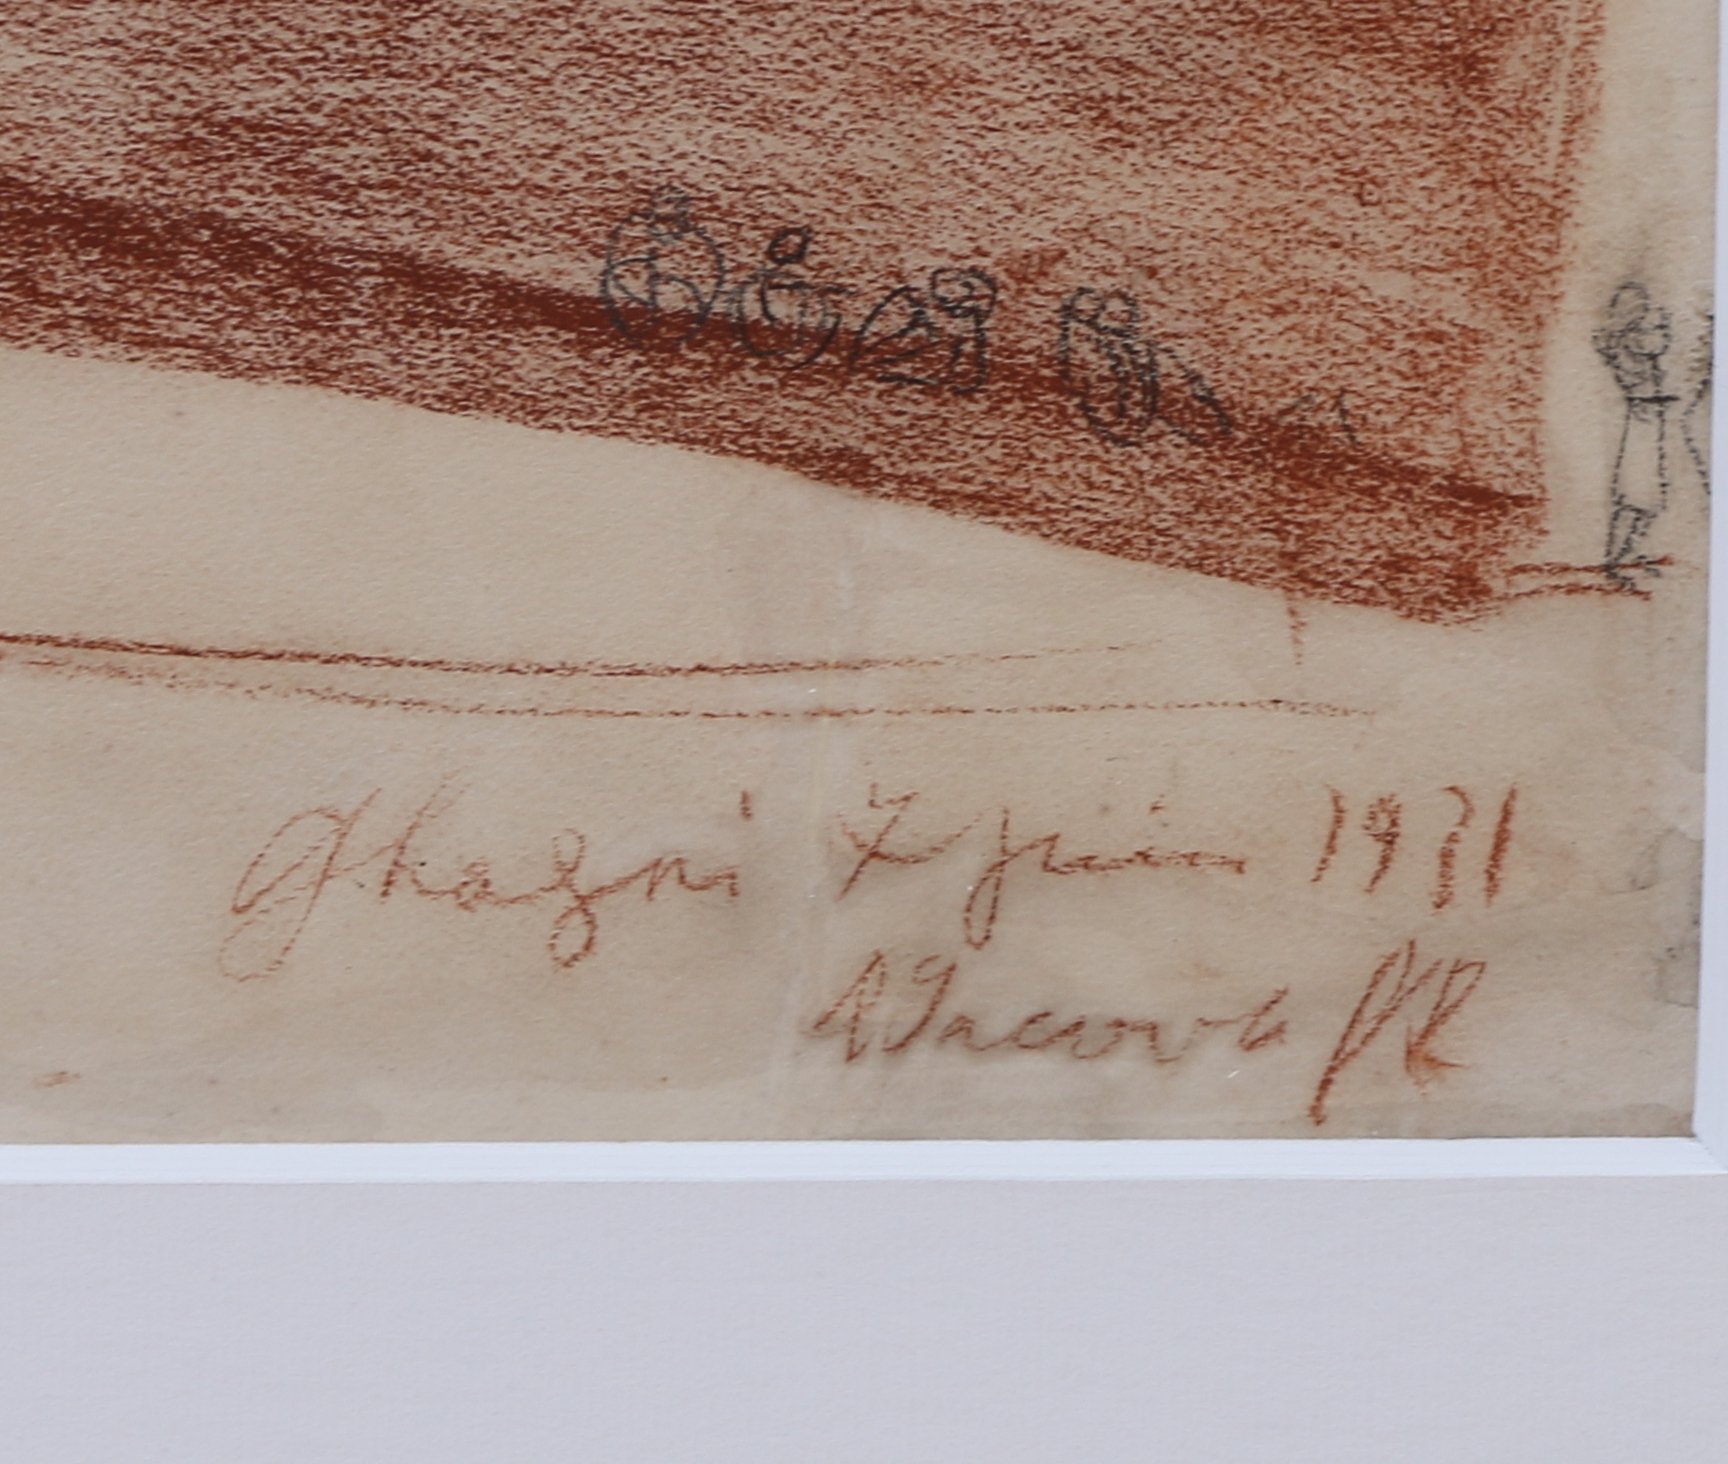 Ghazni 7 juin 1931
A Iacovleff